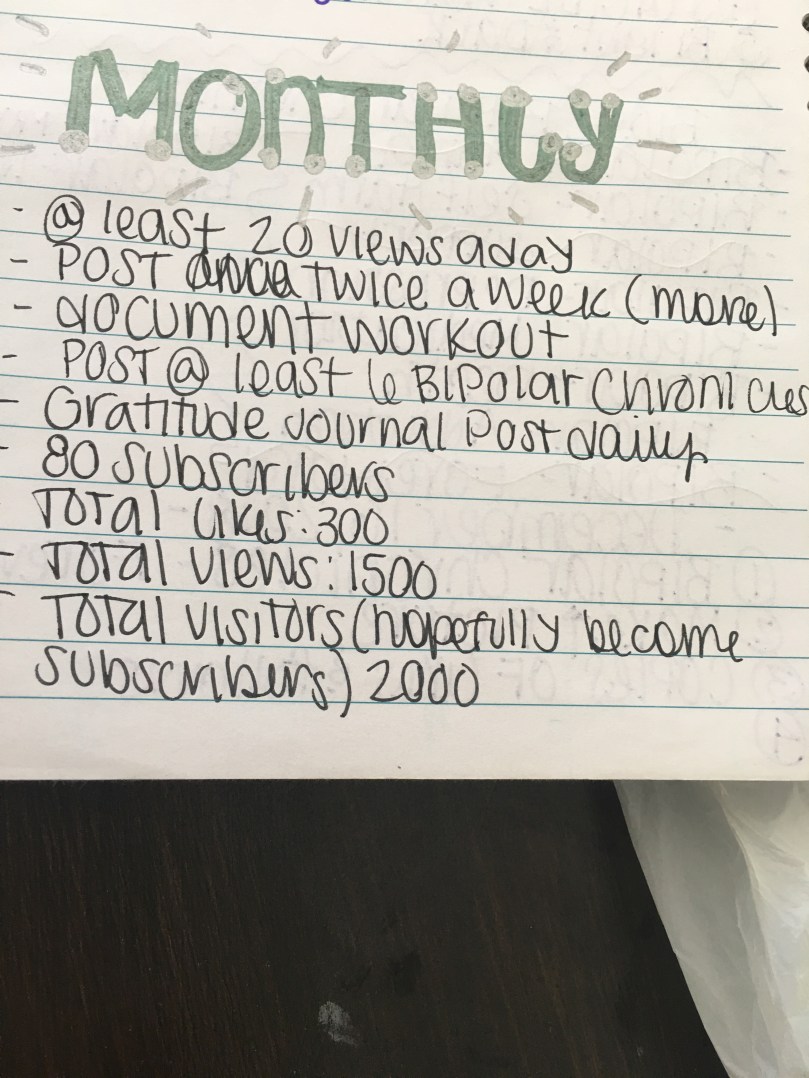 MONTHLY
- @ least 20 views a day
- POST twice a week (more)
- document workout
- POST @ least 6 Bipolar Chronicles
- Gratitude Journal Post daily
- 80 subscribers
Total likes: 300
- Total views: 1500
- Total visitors (hopefully become
subscribers) 2000